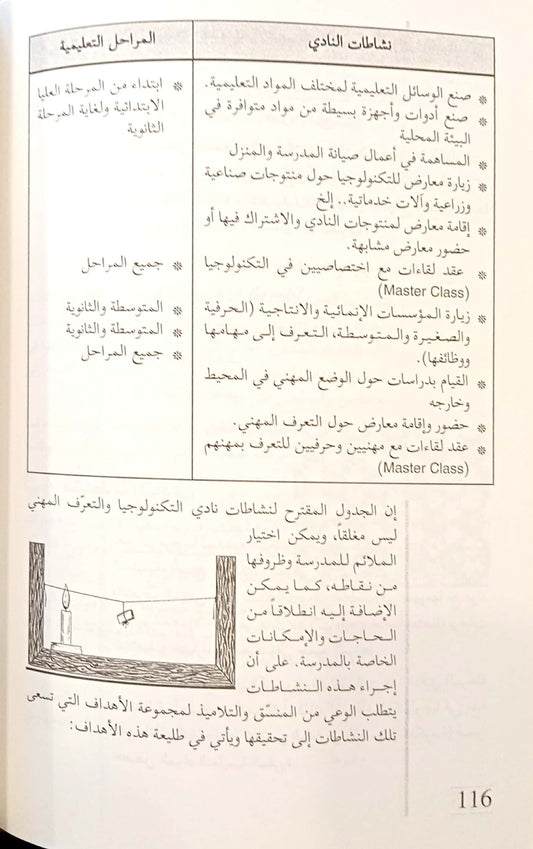 نشاطات النادي
المراحل التعليمية
* صنع الوسائل التعليمية لمختلف المواد التعليمية.
* صنع أدوات وأجهزة بسيطة من مواد متوافرة في
البيئة المحلية
* المساهمة في أعمال صيانة المدرسة والمنزل
* زيارة معارض للتكنولوجيا حول منتوجات صناعية
وزراعية وآلات خدماتية.. إلخ
* إقامة معارض لمنتوجات النادي والاشتراك فيها أو
حضور معارض مشابهة.
* عقد لقاءات مع اختصاصيين في التكنولوجيا
(Master Class)
* زيارة المؤسسات الإنمائية والانتاجية (الحرفية
والصغيرة والمتوسطة، التعرف إلى مهامها
ووظائفها).
* القيام بدراسات حول الوضع المهني في المحيط
وخارجه
* حضور وإقامة معارض حول التعرف المهني.
* عقد لقاءات مع مهنيين وحرفيين للتعرف بمهنهم
(Master Class)
* ابتداء من المرحلة العليا
الابتدائية ولغاية المرحلة
الثانوية
* جميع المراحل
* المتوسطة والثانوية
* المتوسطة والثانوية
* جميع المراحل
إن الجدول المقترح لنشاطات نادي التكنولوجيا والتعرّف المهني
ليس مغلقاً، ويمكن اختيار
الملائم للمدرسة وظروفها
من نقاطه، كما يمكن
الإضافة إليه انطلاقاً من
الحاجات والإمكانات
الخاصة بالمدرسة. على أن
إجراء هذه النشاطات
يتطلب الوعي من المنسّق والتلاميذ لمجموعة الأهداف التي تسعى
تلك النشاطات إلى تحقيقها ويأتي في طليعة هذه الأهداف:
116